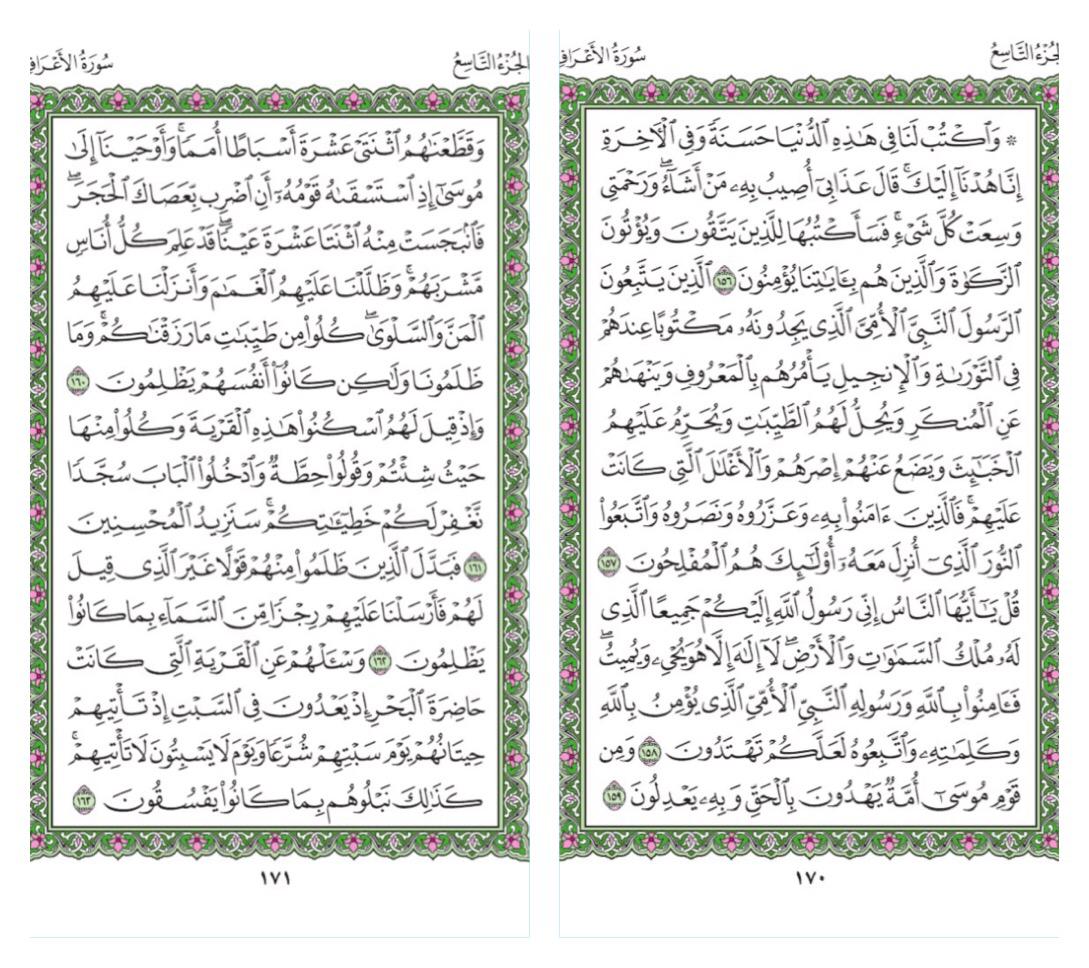 الجزء التاسع
سورة الأعراف
۞ وَٱكْتُبْ لَنَا فِى هَٰذِهِ ٱلدُّنْيَا حَسَنَةً وَفِى ٱلْءَاخِرَةِ
إِنَّا هُدْنَآ إِلَيْكَ ۚ قَالَ عَذَابِىٓ أُصِيبُ بِهِۦ مَنْ أَشَآءُ ۖ وَرَحْمَتِى
وَسِعَتْ كُلَّ شَىْءٍ ۚ فَسَأَكْتُبُهَا لِلَّذِينَ يَتَّقُونَ وَيُؤْتُونَ
ٱلزَّكَوٰةَ وَٱلَّذِينَ هُم بِـَٔايَٰتِنَا يُؤْمِنُونَ ١٥٦ ٱلَّذِينَ يَتَّبِعُونَ
ٱلرَّسُولَ ٱلنَّبِىَّ ٱلْأُمِّىَّ ٱلَّذِى يَجِدُونَهُۥ مَكْتُوبًا عِندَهُمْ
فِى ٱلتَّوْرَىٰةِ وَٱلْإِنجِيلِ يَأْمُرُهُم بِٱلْمَعْرُوفِ وَيَنْهَىٰهُمْ
عَنِ ٱلْمُنكَرِ وَيُحِلُّ لَهُمُ ٱلطَّيِّبَٰتِ وَيُحَرِّمُ عَلَيْهِمُ
ٱلْخَبَٰٓئِثَ وَيَضَعُ عَنْهُمْ إِصْرَهُمْ وَٱلْأَغْلَٰلَ ٱلَّتِى كَانَتْ
عَلَيْهِمْ ۚ فَٱلَّذِينَ ءَامَنُوا۟ بِهِۦ وَعَزَّرُوهُ وَنَصَرُوهُ وَٱتَّبَعُوا۟
ٱلنُّورَ ٱلَّذِىٓ أُنزِلَ مَعَهُۥٓ ۙ أُو۟لَٰٓئِكَ هُمُ ٱلْمُفْلِحُونَ ١٥٧
قُلْ يَٰٓأَيُّهَا ٱلنَّاسُ إِنِّى رَسُولُ ٱللَّهِ إِلَيْكُمْ جَمِيعًا ٱلَّذِى
لَهُۥ مُلْكُ ٱلسَّمَٰوَٰتِ وَٱلْأَرْضِ ۖ لَآ إِلَٰهَ إِلَّا هُوَ يُحْىِۦ وَيُمِيتُ ۖ
فَـَٔامِنُوا۟ بِٱللَّهِ وَرَسُولِهِ ٱلنَّبِىِّ ٱلْأُمِّىِّ ٱلَّذِى يُؤْمِنُ بِٱللَّهِ
وَكَلِمَٰتِهِۦ وَٱتَّبِعُوهُ لَعَلَّكُمْ تَهْتَدُونَ ١٥٨ وَمِن
قَوْمِ مُوسَىٰٓ أُمَّةٌ يَهْدُونَ بِٱلْحَقِّ وَبِهِۦ يَعْدِلُونَ ١٥٩
١٧٠
الجزء التاسع
سورة الأعراف
وَقَطَّعْنَٰهُمُ ٱثْنَتَىْ عَشْرَةَ أَسْبَاطًا أُمَمًا ۚ وَأَوْحَيْنَآ إِلَىٰ
مُوسَىٰٓ إِذِ ٱسْتَسْقَىٰهُ قَوْمُهُۥٓ أَنِ ٱضْرِب بِّعَصَاكَ ٱلْحَجَرَ ۖ
فَٱنۢبَجَسَتْ مِنْهُ ٱثْنَتَا عَشْرَةَ عَيْنًا ۖ قَدْ عَلِمَ كُلُّ أُنَاسٍ
مَّشْرَبَهُمْ ۚ وَظَلَّلْنَا عَلَيْهِمُ ٱلْغَمَٰمَ وَأَنزَلْنَا عَلَيْهِمُ
ٱلْمَنَّ وَٱلسَّلْوَىٰ ۖ كُلُوا۟ مِن طَيِّبَٰتِ مَا رَزَقْنَٰكُمْ ۚ وَمَا
ظَلَمُونَا وَلَٰكِن كَانُوٓا۟ أَنفُسَهُمْ يَظْلِمُونَ ١٦٠
وَإِذْ قِيلَ لَهُمُ ٱسْكُنُوا۟ هَٰذِهِ ٱلْقَرْيَةَ وَكُلُوا۟ مِنْهَا
حَيْثُ شِئْتُمْ وَقُولُوا۟ حِطَّةٌ وَٱدْخُلُوا۟ ٱلْبَابَ سُجَّدًا
نَّغْفِرْ لَكُمْ خَطِيٓـَٰٔتِكُمْ ۚ سَنَزِيدُ ٱلْمُحْسِنِينَ
١٦١ فَبَدَّلَ ٱلَّذِينَ ظَلَمُوا۟ مِنْهُمْ قَوْلًا غَيْرَ ٱلَّذِى قِيلَ
لَهُمْ فَأَرْسَلْنَا عَلَيْهِمْ رِجْزًا مِّنَ ٱلسَّمَآءِ بِمَا كَانُوا۟
يَظْلِمُونَ ١٦٢ وَسْـَٔلْهُمْ عَنِ ٱلْقَرْيَةِ ٱلَّتِى كَانَتْ
حَاضِرَةَ ٱلْبَحْرِ إِذْ يَعْدُونَ فِى ٱلسَّبْتِ إِذْ تَأْتِيهِمْ
حِيتَانُهُمْ يَوْمَ سَبْتِهِمْ شُرَّعًا وَيَوْمَ لَا يَسْبِتُونَ ۙ لَا تَأْتِيهِمْ ۚ
كَذَٰلِكَ نَبْلُوهُم بِمَا كَانُوا۟ يَفْسُقُونَ ١٦٣
١٧١